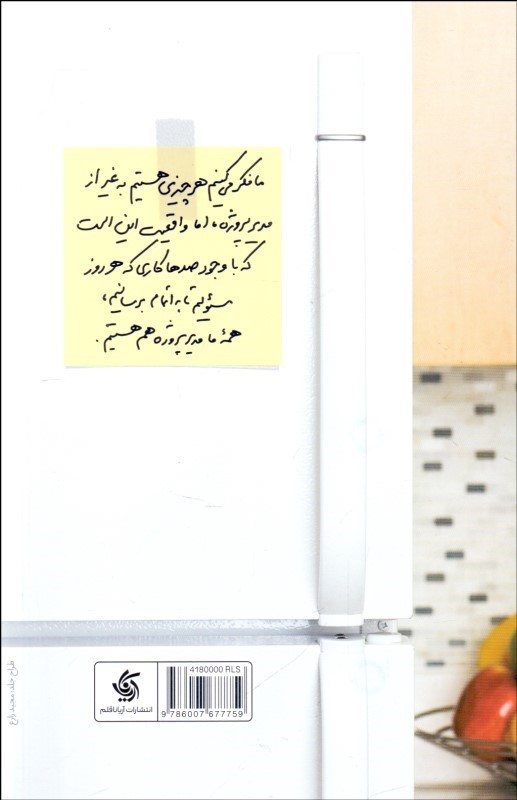 ما فکر می‌کنیم هر چیزی هستیم به غیر از
مدیر پروژه، اما واقعیت این است
که با وجود صدها کاری که هر روز
مسئولیم تا به اتمام برسانیم،
همهٔ ما مدیر پروژه هم هستیم.
4180000 RLS
آریانا
انتشارات آریاناقلم
9 786007 677759
طراح جلد: مجید زارع